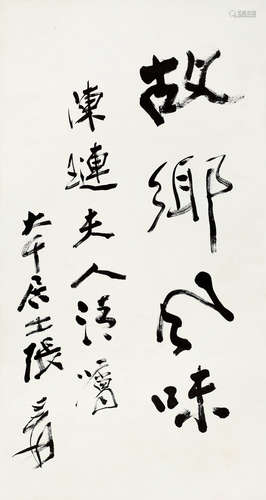 故鄉風味
陳璉夫人清屬
大千居士張爰